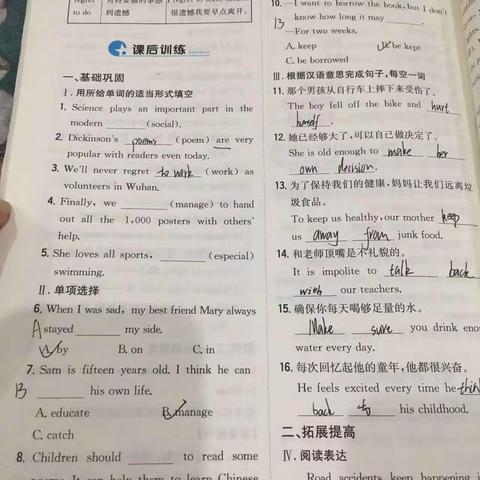 regret
to do
对将要做的事感
到遗憾
很遗憾我要早点离开。
课后训练
一、基础巩固
Ⅰ. 用所给单词的适当形式填空
1. Science plays an important part in the
modern ________ (social).
2. Dickinson's poems (poem) are very
popular with readers even today.
3. We'll never regret to work (work) as
volunteers in Wuhan.
4. Finally, we ________ (manage) to hand
out all the 1,000 posters with others'
help.
5. She loves all sports, ________ (especial)
swimming.
Ⅱ. 单项选择
6. When I was sad, my best friend Mary always
A stayed ________ my side.
A. by B. on C. in
7. Sam is fifteen years old. I think he can
B ________ his own life.
A. educate B. manage
C. catch
8. Children should ________ to read some
poems. It can help them to learn Chinese
10. —I want to borrow the book, but I don't
B know how long it may ________.
—For two weeks.
A. keep B. be kept
C. be borrowed
Ⅲ. 根据汉语意思完成句子,每空一词
11. 那个男孩从自行车上摔下来受伤了。
The boy fell off the bike and hurt
himself.
12. 她已经够大了,可以自己做决定了。
She is old enough to make her
own decision.
13. 为了保持我们的健康,妈妈让我们远离垃
圾食品。
To keep us healthy, our mother keep
us away from junk food.
14. 和老师顶嘴是不礼貌的。
It is impolite to talk back
with our teachers.
15. 确保你每天喝够足量的水。
Make sure you drink eno
water every day.
16. 每次回忆起他的童年,他都很兴奋。
He feels excited every time he thin
back to his childhood.
二、拓展提高
Ⅳ. 阅读表达
Road accidents keep happening i